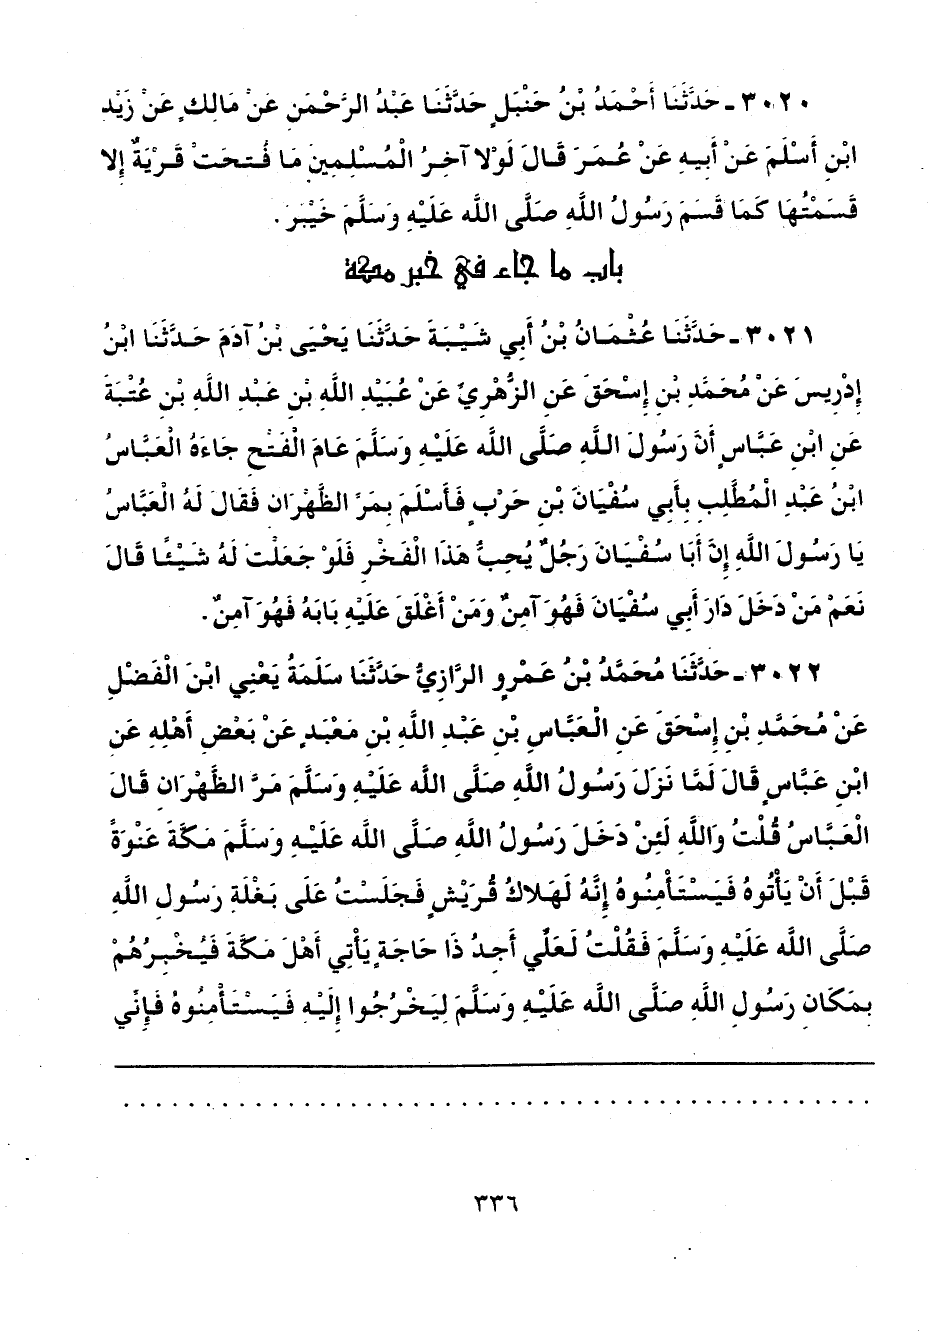 ٣٠٢٠ - حَدَّثَنَا أَحْمَدُ بْنُ حَنْبَلٍ حَدَّثَنَا عَبْدُ الرَّحْمَنِ عَنْ مَالِكٍ عَنْ زَيْدِ
ابْنِ أَسْلَمَ عَنْ أَبِيهِ عَنْ عُمَرَ قَالَ لَوْلا آخِرُ الْمُسْلِمِينَ مَا فُتِحَتْ قَرْيَةٌ إِلا
قَسَمْتُهَا كَمَا قَسَمَ رَسُولُ اللَّهِ صَلَّى اللَّه عَلَيْهِ وَسَلَّمَ خَيْبَرَ .
باب ما جاء في خبر مكة
٣٠٢١ - حَدَّثَنَا عُثْمَانُ بْنُ أَبِي شَيْبَةَ حَدَّثَنَا يَحْيَى بْنُ آدَمَ حَدَّثَنَا ابْنُ
إِدْرِيسَ عَنْ مُحَمَّدِ بْنِ إِسْحَقَ عَنِ الزُّهْرِيِّ عَنْ عُبَيْدِ اللَّهِ بْنِ عَبْدِ اللَّهِ بْنِ عُتْبَةَ
عَنِ ابْنِ عَبَّاسٍ أَنَّ رَسُولَ اللَّهِ صَلَّى اللَّه عَلَيْهِ وَسَلَّمَ عَامَ الْفَتْحِ جَاءَهُ الْعَبَّاسُ
ابْنُ عَبْدِ الْمُطَّلِبِ بِأَبِي سُفْيَانَ بْنِ حَرْبٍ فَأَسْلَمَ بِمَرِّ الظَّهْرَانِ فَقَالَ لَهُ الْعَبَّاسُ
يَا رَسُولَ اللَّهِ إِنَّ أَبَا سُفْيَانَ رَجُلٌ يُحِبُّ هَذَا الْفَخْرِ فَلَوْ جَعَلْتَ لَهُ شَيْئًا قَالَ
نَعَمْ مَنْ دَخَلَ دَارَ أَبِي سُفْيَانَ فَهُوَ آمِنٌ وَمَنْ أَغْلَقَ عَلَيْهِ بَابَهُ فَهُوَ آمِنٌ .
٣٠٢٢ - حَدَّثَنَا مُحَمَّدُ بْنُ عَمْرٍو الرَّازِيُّ حَدَّثَنَا سَلَمَةُ يَعْنِي ابْنَ الْفَضْلِ
عَنْ مُحَمَّدِ بْنِ إِسْحَقَ عَنِ الْعَبَّاسِ بْنِ عَبْدِ اللَّهِ بْنِ مَعْبَدٍ عَنْ بَعْضِ أَهْلِهِ عَنِ
ابْنِ عَبَّاسٍ قَالَ لَمَّا نَزَلَ رَسُولُ اللَّهِ صَلَّى اللَّه عَلَيْهِ وَسَلَّمَ مَرَّ الظَّهْرَانِ قَالَ
الْعَبَّاسُ قُلْتُ وَاللَّهِ لَئِنْ دَخَلَ رَسُولُ اللَّهِ صَلَّى اللَّه عَلَيْهِ وَسَلَّمَ مَكَّةَ عَنْوَةً
قَبْلَ أَنْ يَأْتُوهُ فَيَسْتَأْمِنُوهُ إِنَّهُ لَهَلاكُ قُرَيْشٍ فَجَلَسْتُ عَلَى بَغْلَةِ رَسُولِ اللَّهِ
صَلَّى اللَّه عَلَيْهِ وَسَلَّمَ فَقُلْتُ لَعَلِّي أَجِدُ ذَا حَاجَةٍ يَأْتِي أَهْلَ مَكَّةَ فَيُخْبِرُهُمْ
بِمَكَانِ رَسُولِ اللَّهِ صَلَّى اللَّه عَلَيْهِ وَسَلَّمَ لِيَخْرُجُوا إِلَيْهِ فَيَسْتَأْمِنُوهُ فَإِنِّي
٣٣٦